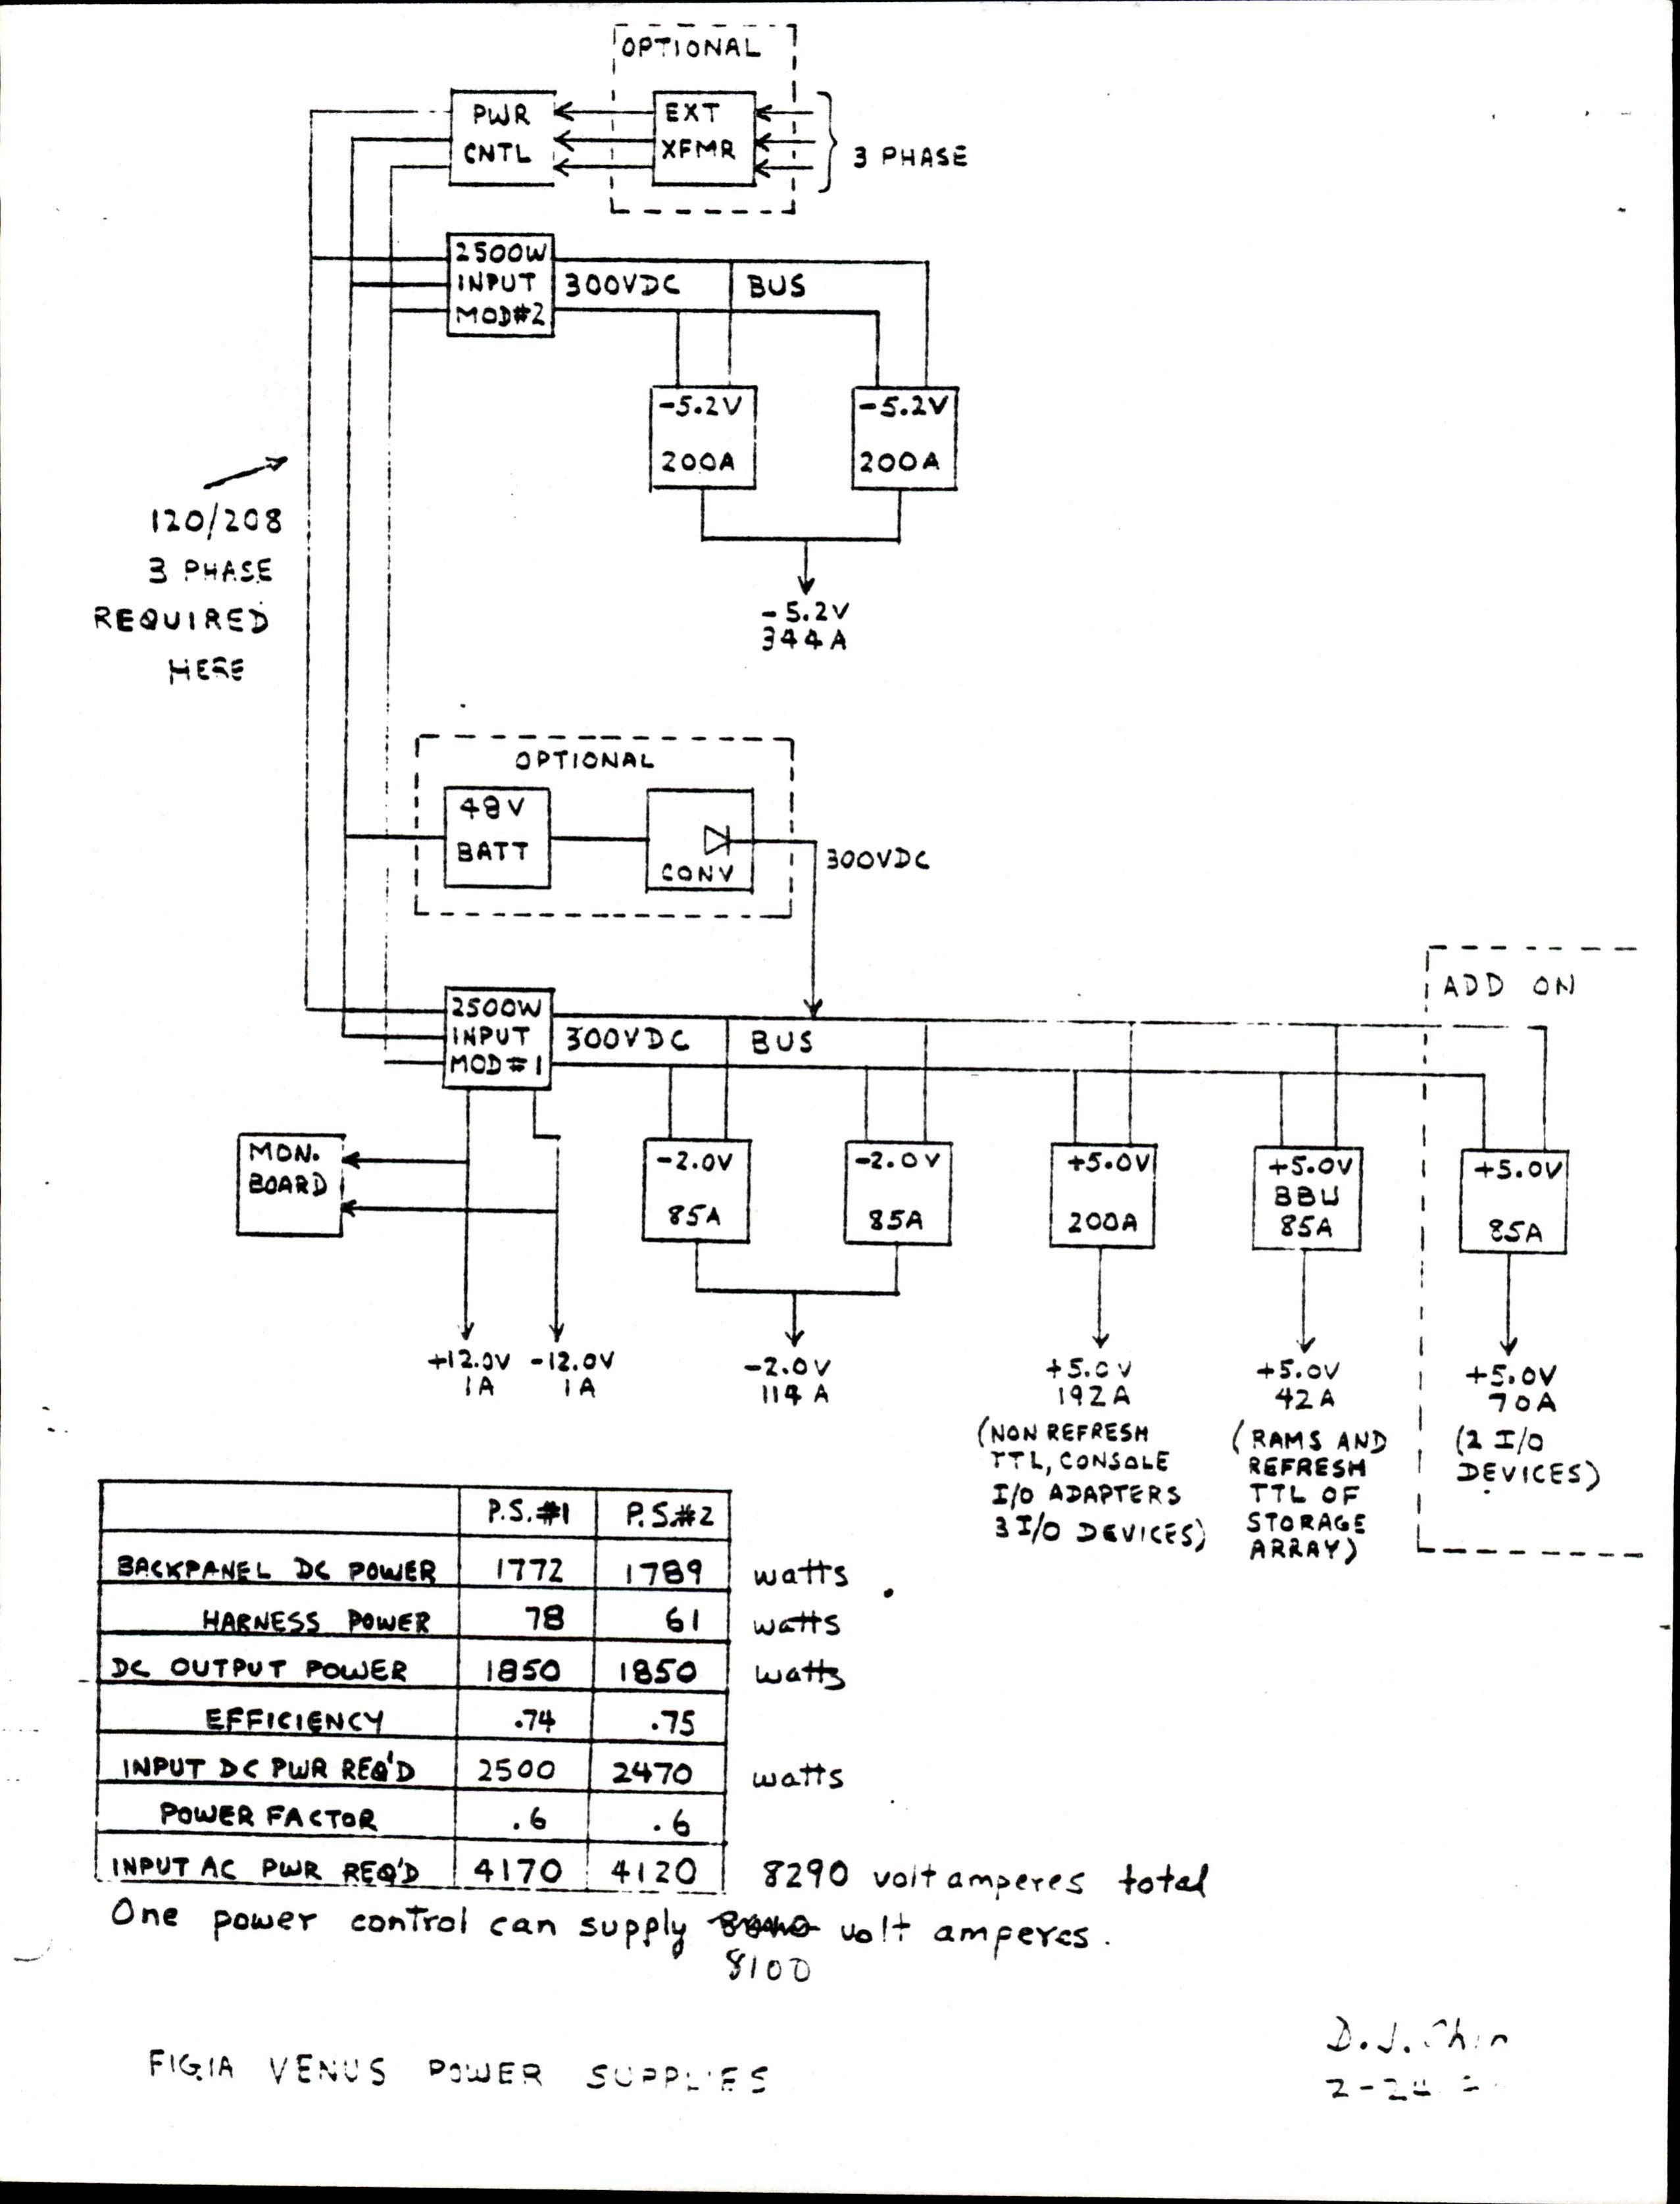 OPTIONAL
PWR
CNTL
EXT
XFMR
3 PHASE
2500W
INPUT
MOD#2
300VDC BUS
-5.2V
200A
-5.2V
200A
120/208
3 PHASE
REQUIRED
HERE
-5.2V
344A
OPTIONAL
48V
BATT
CONV
300VDC
ADD ON
2500W
INPUT
MOD#1
300VDC BUS
MON.
BOARD
-2.0V
85A
-2.0V
85A
+5.0V
200A
+5.0V
BBU
85A
+5.0V
85A
+12.0V
1A
-12.0V
1A
-2.0V
114A
+5.0V
192A
(NON REFRESH
TTL, CONSOLE
I/O ADAPTERS
3 I/O DEVICES)
+5.0V
42A
(RAMS AND
REFRESH
TTL OF
STORAGE
ARRAY)
+5.0V
70A
(2 I/O
DEVICES)
P.S.#1 P.S.#2
BACKPANEL DC POWER 1772 1789 watts
HARNESS POWER 78 61 watts
DC OUTPUT POWER 1850 1850 watts
EFFICIENCY .74 .75
INPUT DC PWR REQ'D 2500 2470 watts
POWER FACTOR .6 .6
INPUT AC PWR REQ'D 4170 4120 8290 volt amperes total
One power control can supply volt amperes.
8100
FIG.1A VENUS POWER SUPPLIES
D.J. Chin